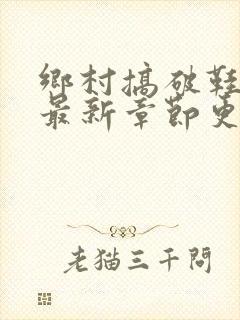 鄉村搞破鞋
最新章節更
老猫三千問